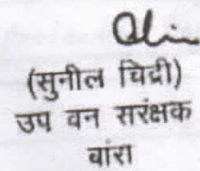 (सुनील चिद्री)
उप वन सरंक्षक
बांरा